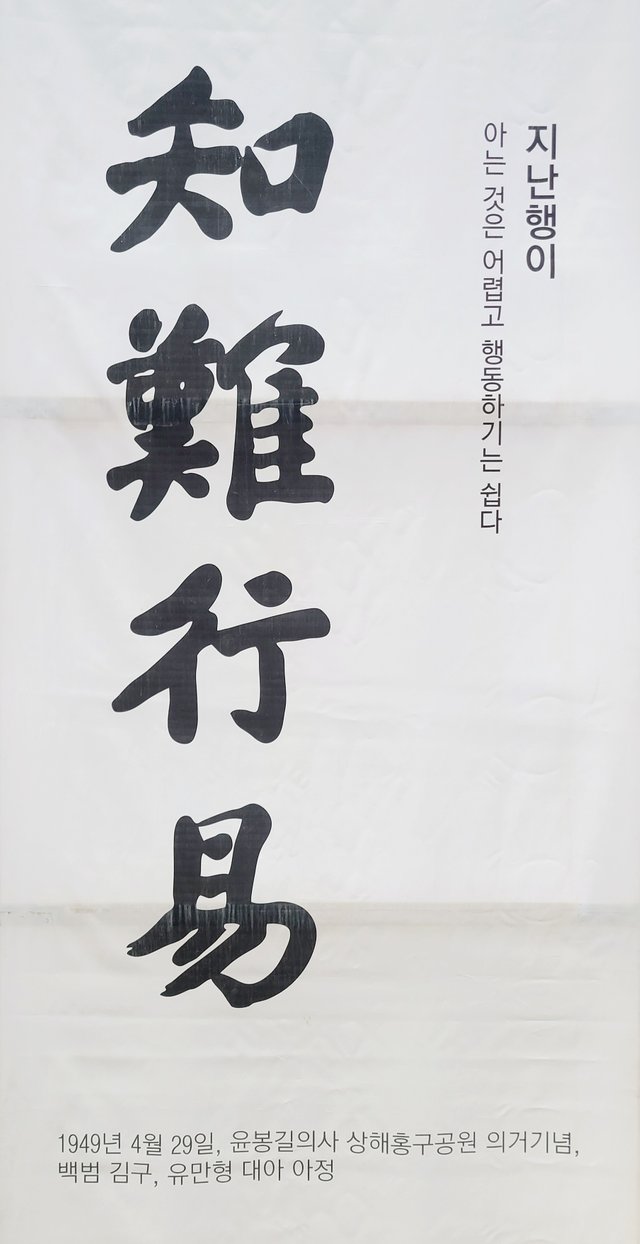 지난행이
아는 것은 어렵고 행동하기는 쉽다
知難行易
1949년 4월 29일, 윤봉길의사 상해홍구공원 의거기념,
백범 김구, 유만형 대아 아정